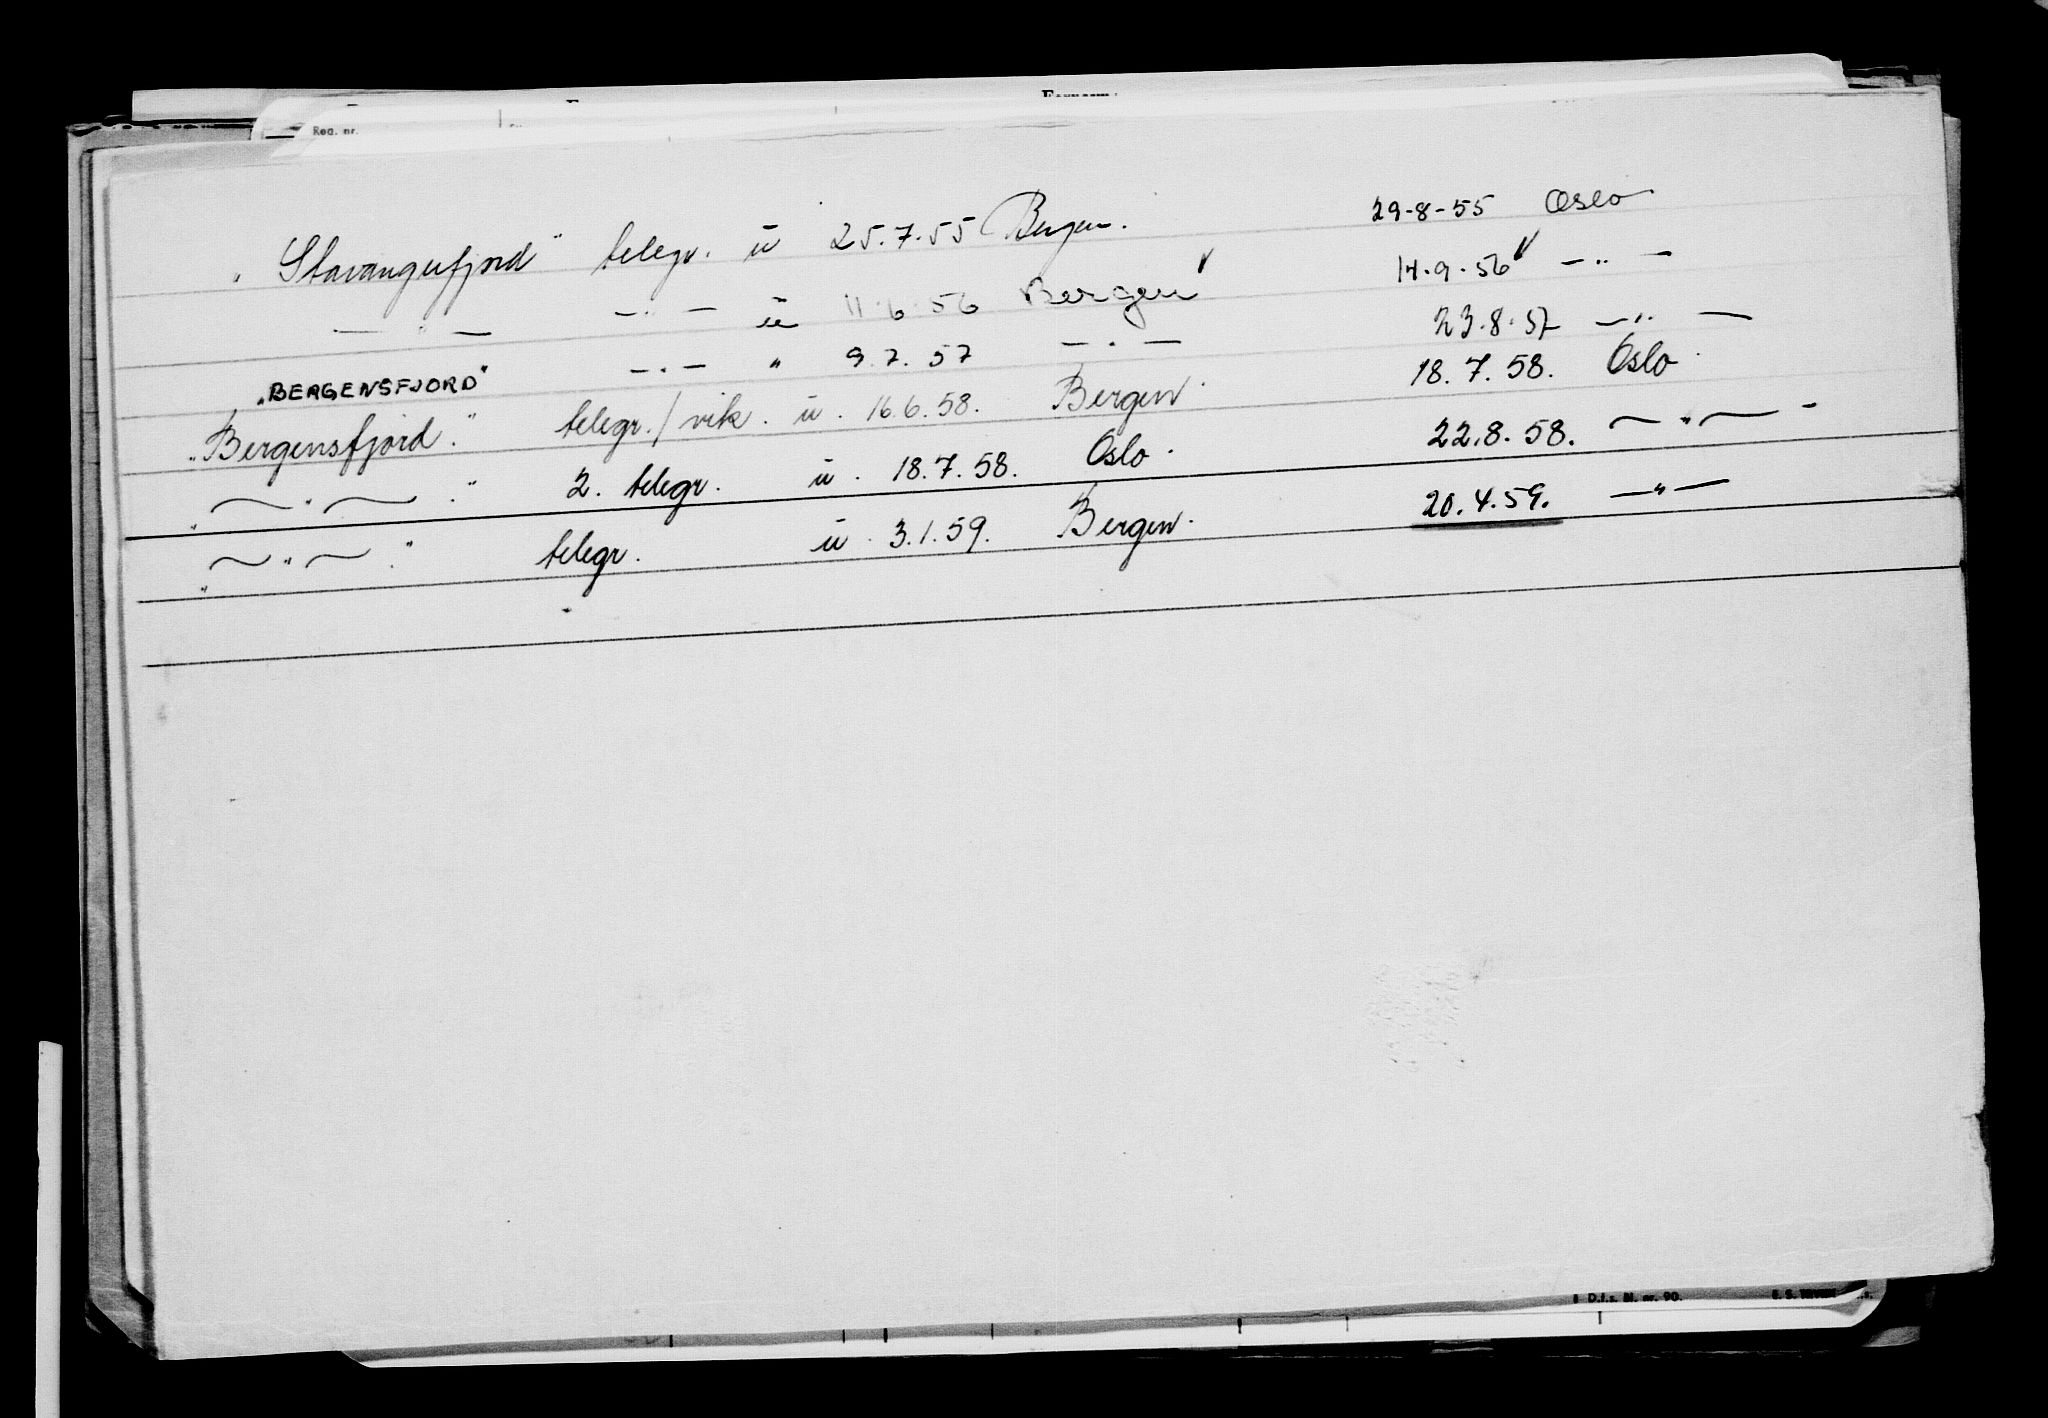 Reg. nr.
"Stavangerfjord" telegr. ü 25.7.55 Bergen. 29-8-55 Oslo
— " — — " — ü 11.6.56 Bergen 14.9.56 — " —
"BERGENSFJORD" — " — " 9.7.57 — " — 23.8.57 — " —
"Bergensfjord." telegr./vik. ü. 16.6.58. Bergen. 18.7.58. Oslo.
" — " — ." 2. telegr. ü. 18.7.58. Oslo. 22.8.58. — " —
" — " — ." telegr. ü. 3.1.59. Bergen. 20.4.59. — " —
D.f.s. Bl. nr. 90.